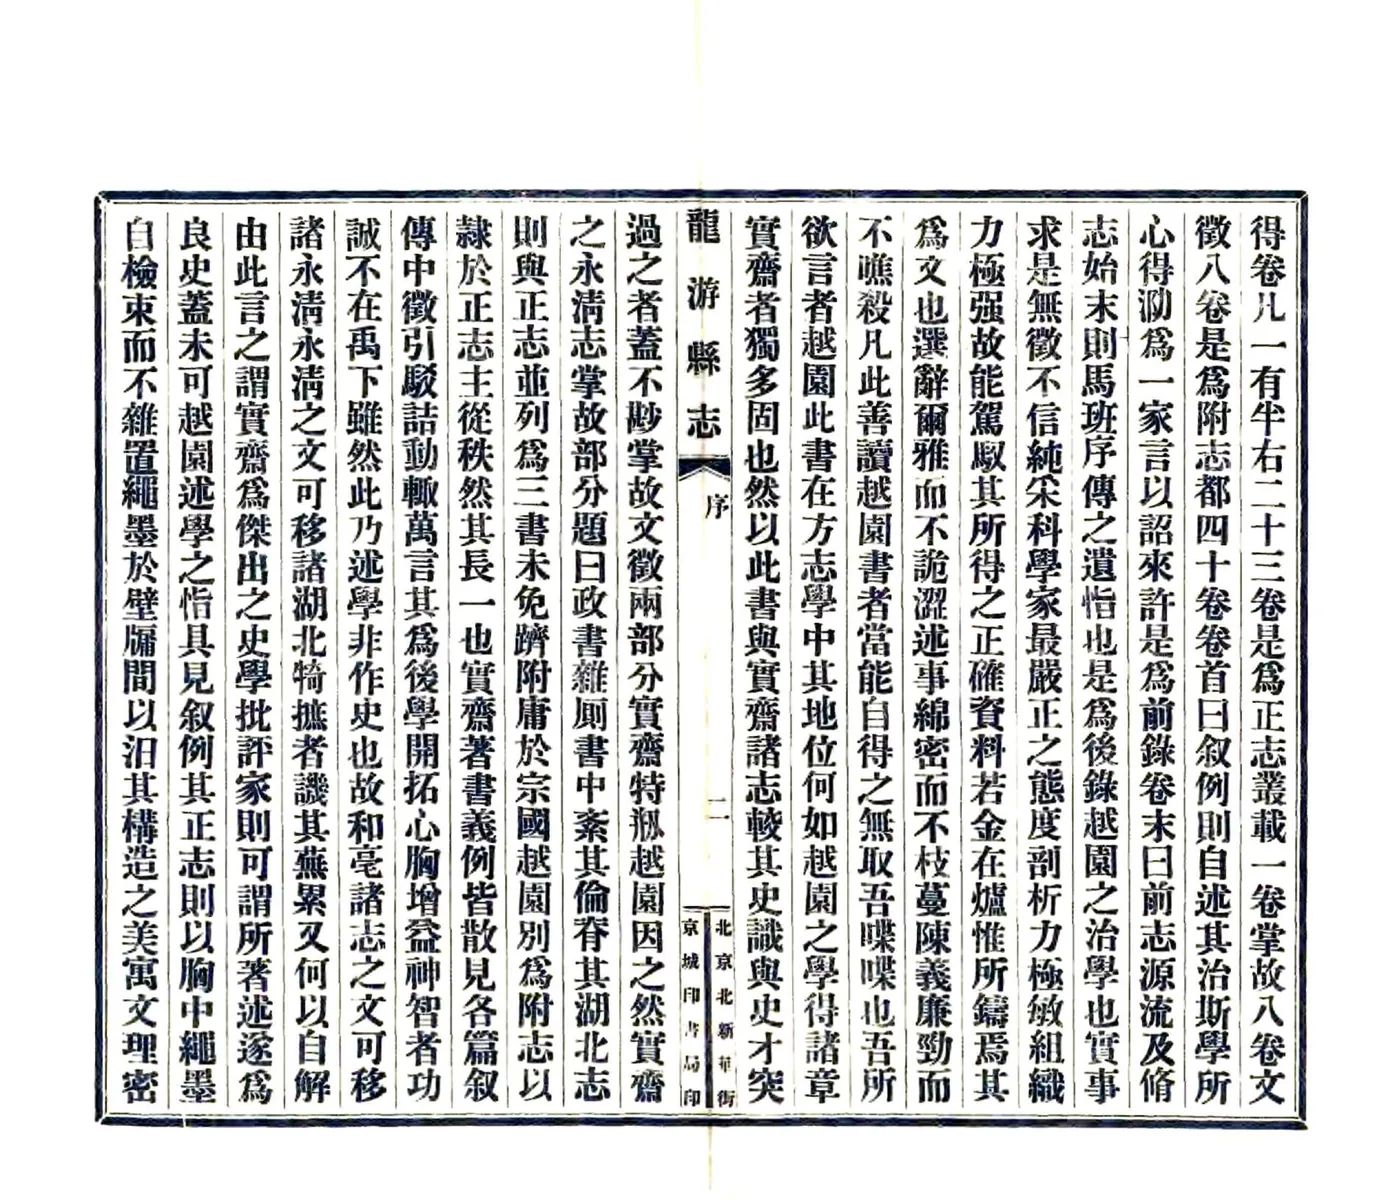 得卷凡一有半右二十三卷是爲正志叢載一卷掌故八卷文
徵八卷是爲附志都四十卷卷首曰叙例則自述其治斯學所
心得泐爲一家言以詔來許是爲前錄卷末曰前志源流及脩
志始末則馬班序傳之遺恉也是爲後錄越園之治學也實事
求是無徵不信純采科學家最嚴正之態度剖析力極敏組織
力極强故能駕馭其所得之正確資料若金在爐惟所鑄焉其
爲文也選辭爾雅而不詭澀述事綿密而不枝蔓陳義廉勁而
不噍殺凡此善讀越園書者當能自得之無取吾喋喋也吾所
欲言者越園此書在方志學中其地位何如越園之學得諸章
實齋者獨多固也然以此書與實齋諸志較其史識與史才突
龍游縣志
序
二
北京北新華街
京城印書局印
過之者蓋不尠掌故文徵兩部分實齋特剏越園因之然實齋
之永淸志掌故部分題曰政書雜厠書中紊其倫脊其湖北志
則與正志並列爲三書未免躋附庸於宗國越園別爲附志以
隸於正志主從秩然其長一也實齋著書義例皆散見各篇叙
傳中徵引駁詰動輙萬言其爲後學開拓心胸增益神智者功
誠不在禹下雖然此乃述學非作史也故和亳諸志之文可移
諸永淸永淸之文可移諸湖北犄摭者譏其蕪累又何以自解
由此言之謂實齋爲傑出之史學批評家則可謂所著述遂爲
良史蓋未可越園述學之恉具見叙例其正志則以胸中繩墨
自檢束而不雜置繩墨於壁牖間以汨其構造之美寓文理密